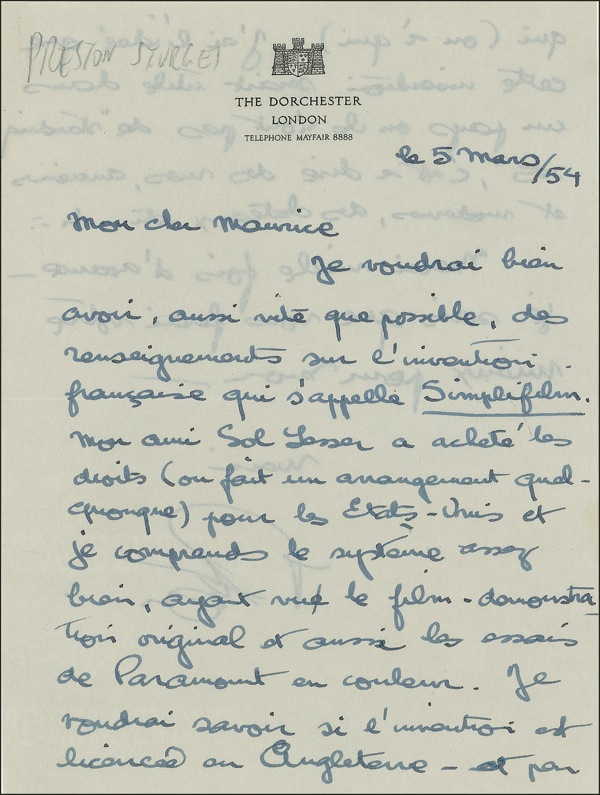 PRESTON STURGES
THE DORCHESTER
LONDON
TELEPHONE MAYFAIR 8888
le 5 Mars/54
Mon cher Maurice
Je voudrai bien
avoir, aussi vite que possible, des
renseignements sur l'invention
française qui s'appelle Simplifilm.
Mon ami Sol Lesser a acheté les
droits (ou fait un arrangement quel-
quonque) pour les Etats-Unis et
je comprends le système assez
bien, ayant vu le film-demonstra
tion original et aussi les essais
de Paramount en couleur. Je
voudrai savoir si l'invention est
licenced en Angleterre - et par